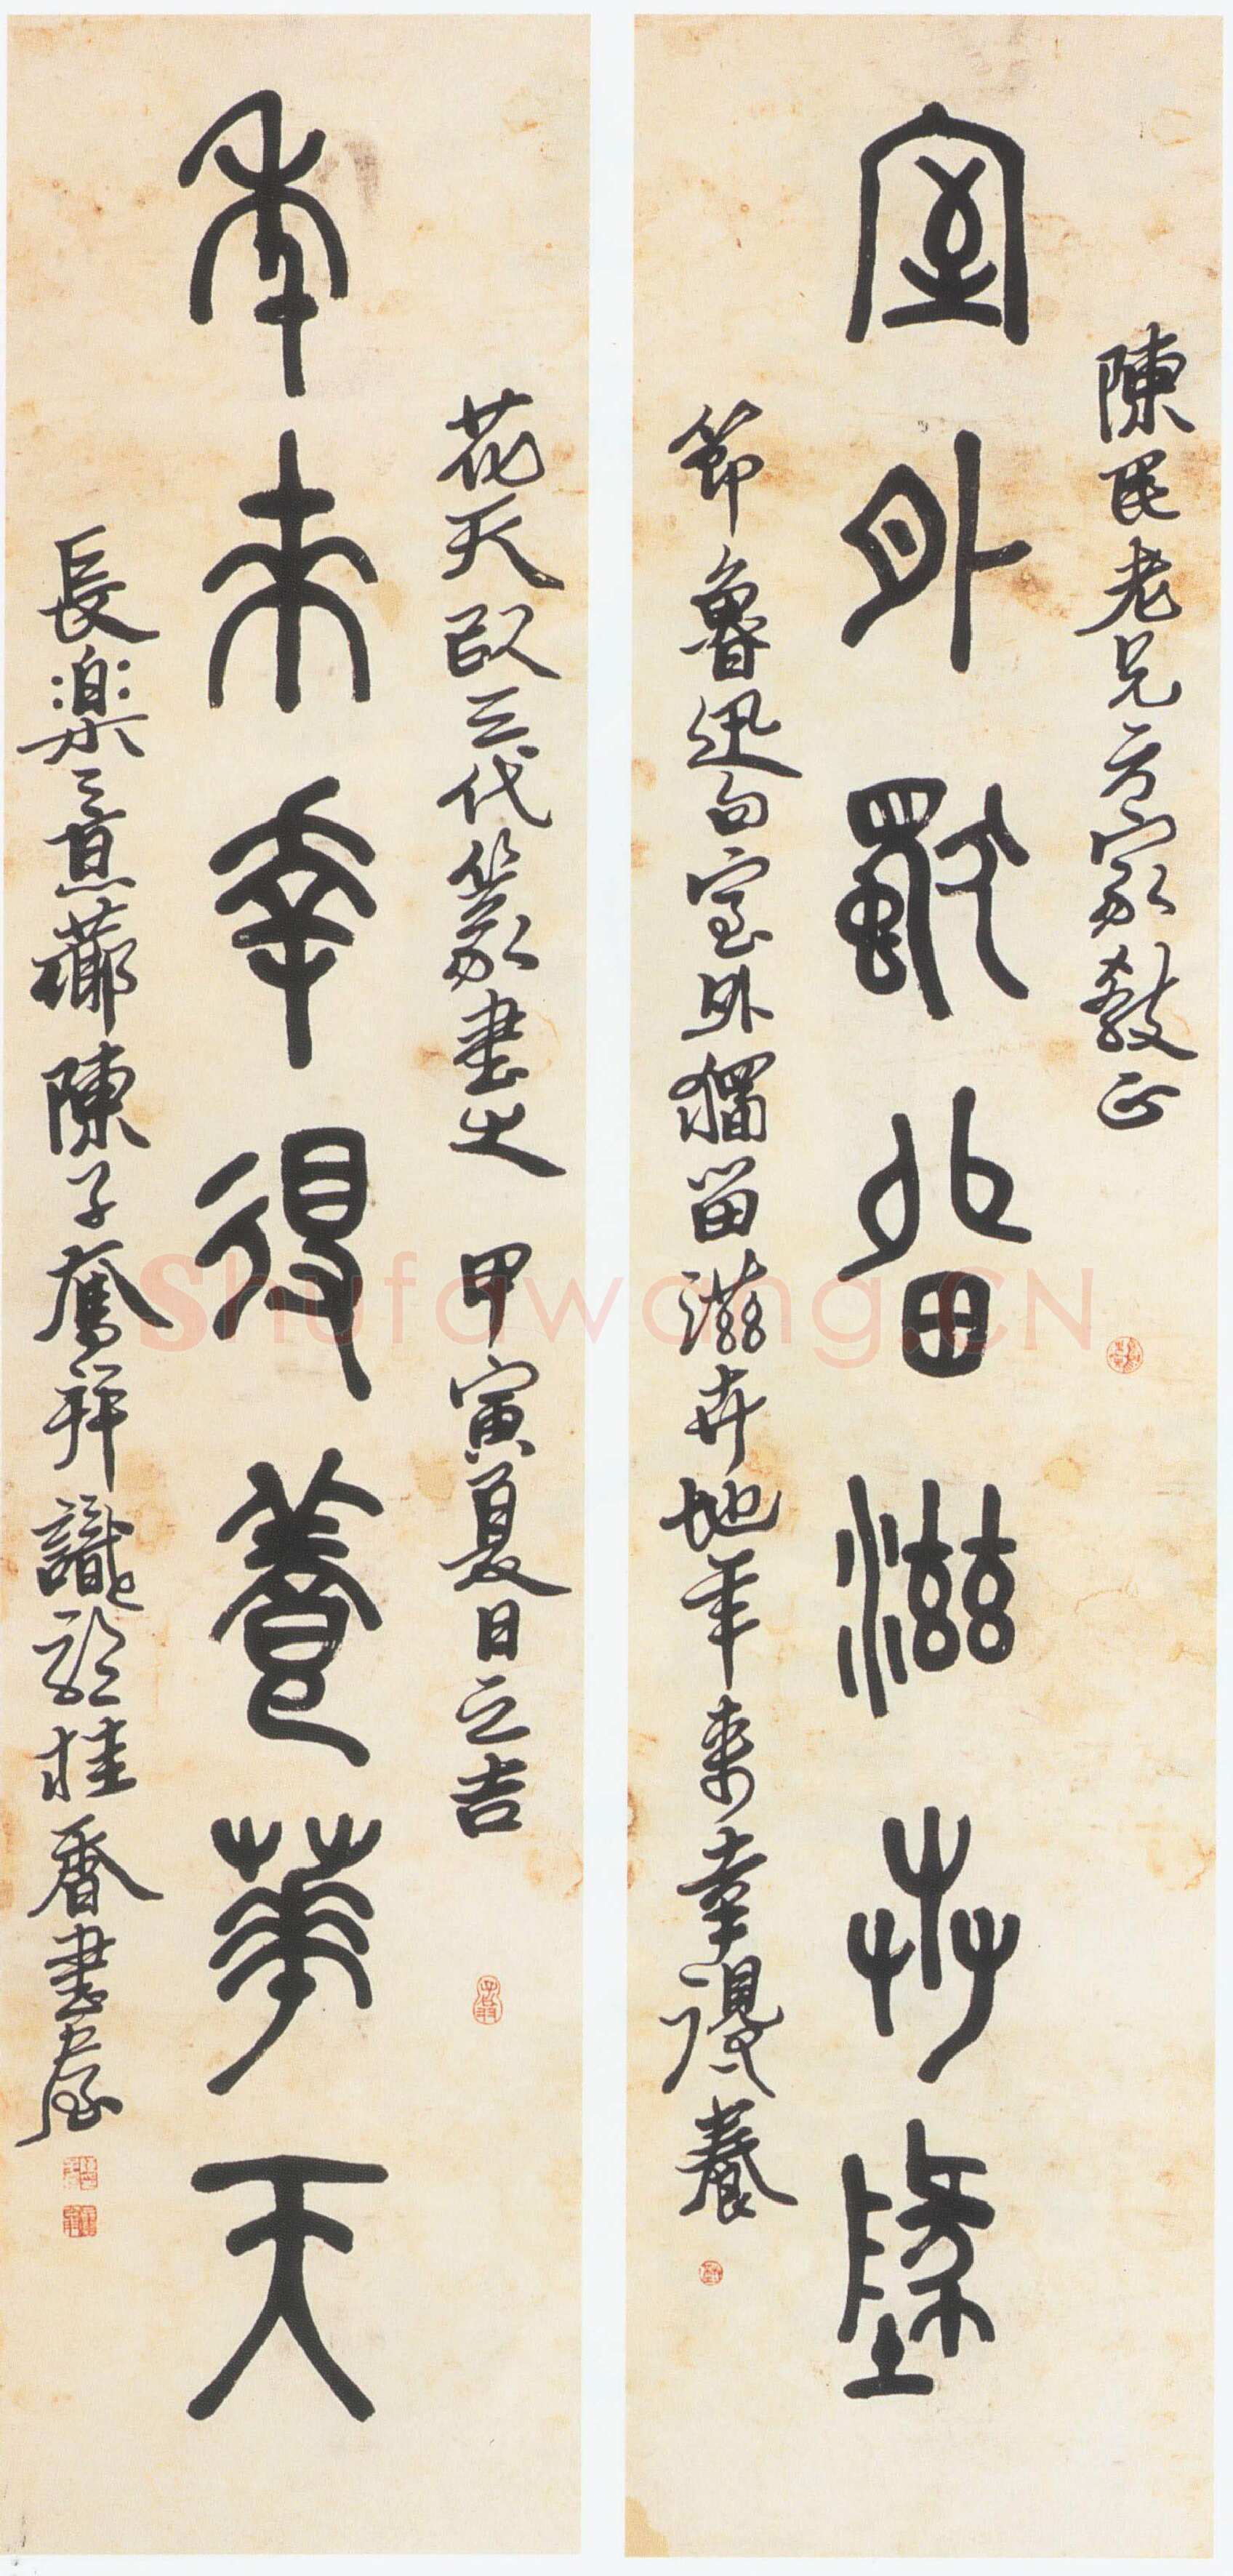 陳民老兄方家教正
室外獨留滋卉地
節魯迅句室外獨留滋卉地年來幸得養
花天以三代篆書之 甲寅夏日之吉
年來幸得養華天
長樂 陳子奮拜識 桂香書屋
Shufawang.CN